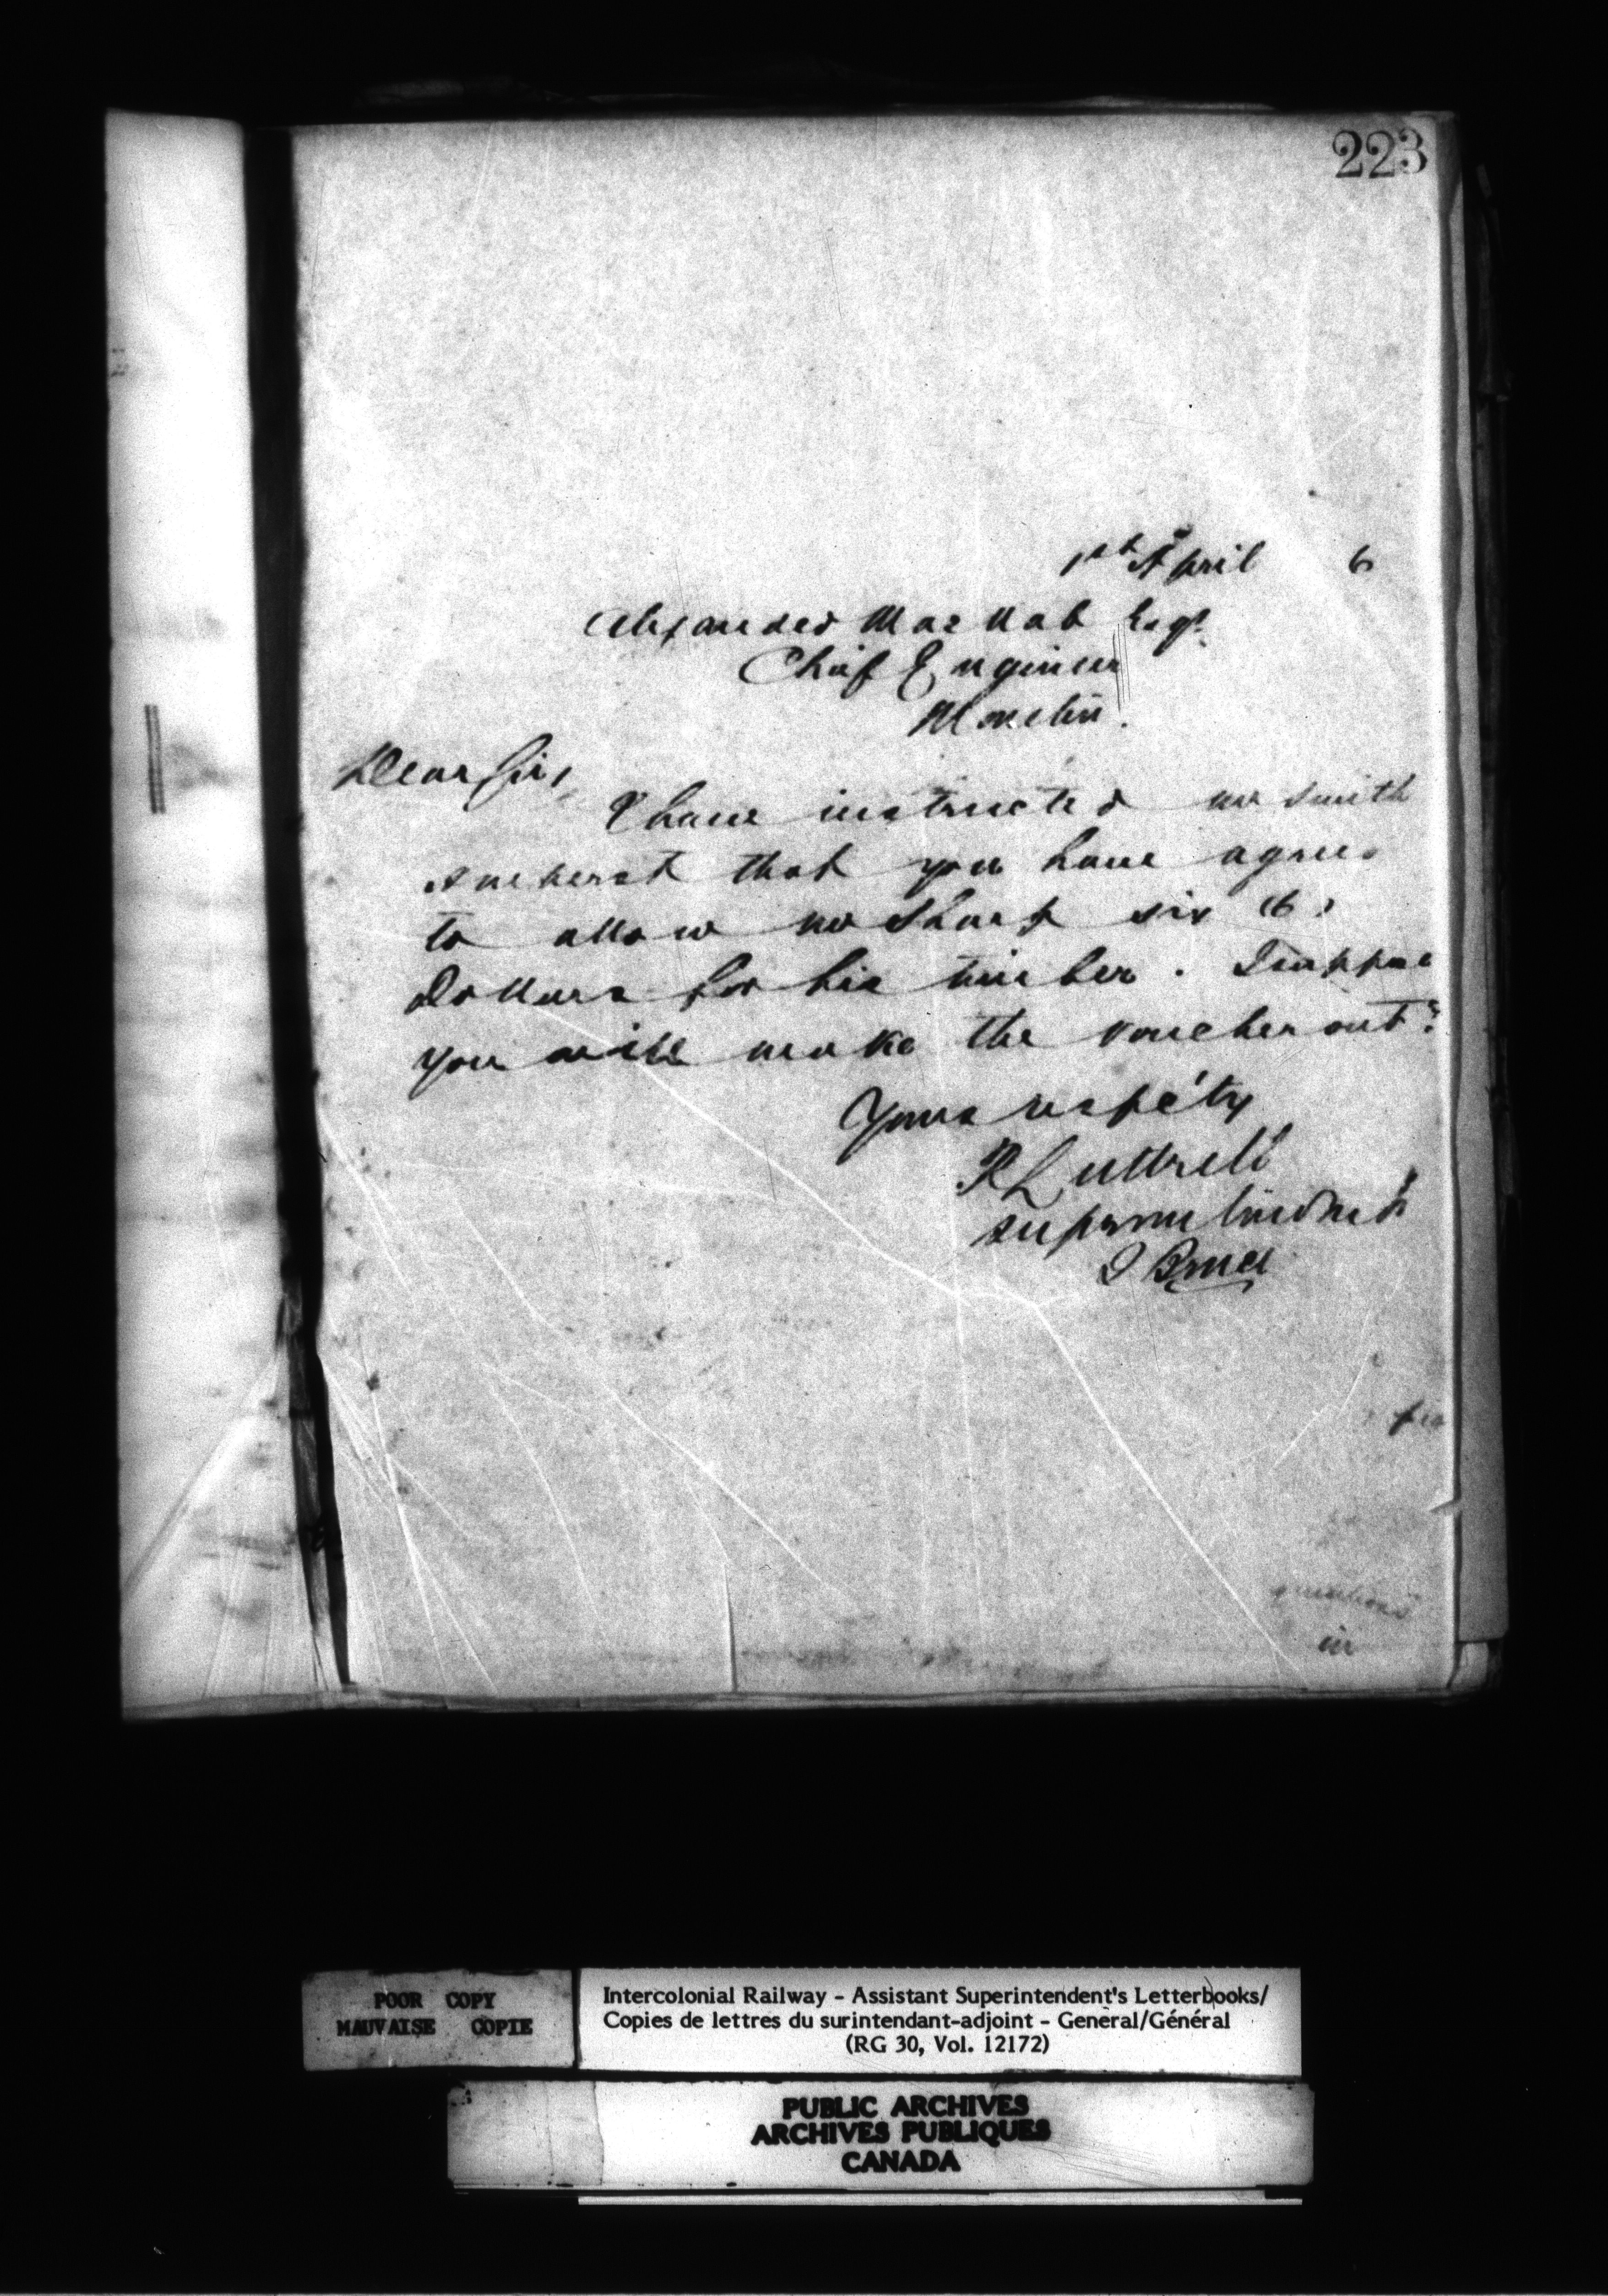 223
1st April 6
Alexander MacNab Esqr
Chief Engineer
Moncton.
Dear Sir,
I have instructed Mr Smith
Amherst that you have agreed
to allow Mr Sharp six (6)
Dollars for his timber. I suppose
you will make the voucher out?
Yours respc'ty
R Luttrell
Superintendent
J Bruce
in
POOR COPY
MAUVAISE COPIE
Intercolonial Railway - Assistant Superintendent's Letterbooks/
Copies de lettres du surintendant-adjoint - General/Général
(RG 30, Vol. 12172)
PUBLIC ARCHIVES
ARCHIVES PUBLIQUES
CANADA